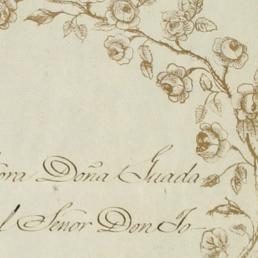 ñora Doña Guada
l Señor Don Jo